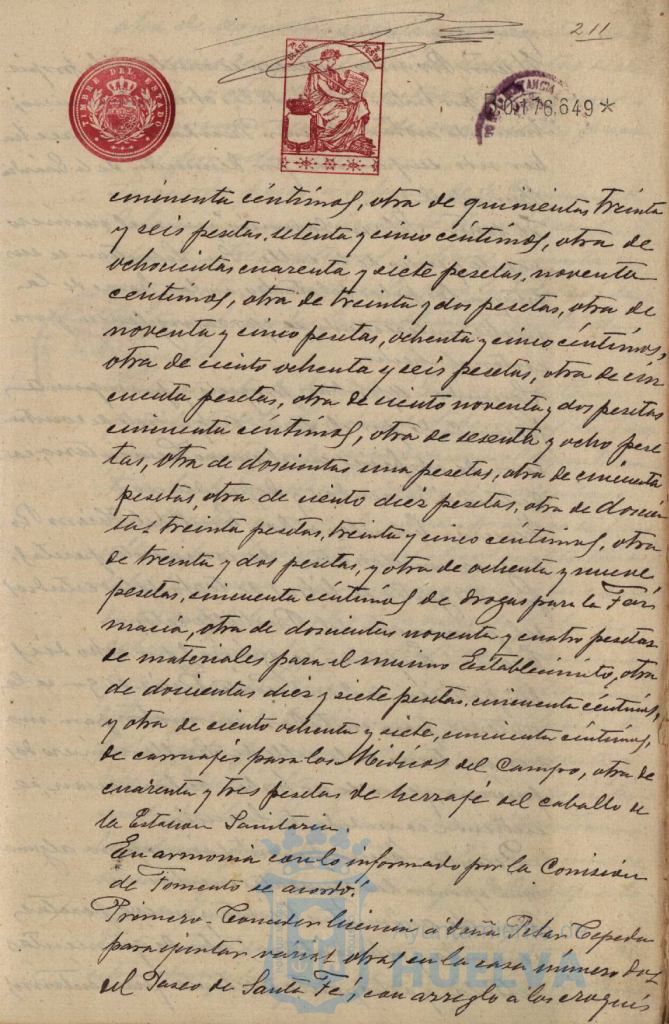 211
TIMBRE DEL ESTADO
7ª CLASE
0.176.649*
cincuenta céntimos, otra de quinientas treinta
y seis pesetas, setenta y cinco céntimos, otra de
ochocientas cuarenta y siete pesetas, noventa
céntimos, otra de treinta y dos pesetas, otra de
noventa y cinco pesetas, ochenta y cinco céntimos,
otra de ciento ochenta y seis pesetas, otra de cin
cuenta pesetas, otra de ciento noventa y dos pesetas
cincuenta céntimos, otra de sesenta y ocho pese
tas, otra de doscientas una pesetas, otra de cincuenta
pesetas, otra de ciento diez pesetas, otra de doscien
tas treinta pesetas, treinta y cinco céntimos, otra
de treinta y dos pesetas, y otra de ochenta y nueve
pesetas, cincuenta céntimos de drogas para la Far
macia, otra de doscientas noventa y cuatro pesetas
de materiales para el mismo Establecimiento, otra
de doscientas diez y siete pesetas, cincuenta céntimos,
y otra de ciento ochenta y siete, cincuenta céntimos,
de carruajes para los Médicos del Campo, otra de
cuarenta y tres pesetas de herraje del caballo de
la Estacion Sanitaria.
En armonia con lo informado por la Comisión
de Fomento se acordó:
Primero- Conceder licencia á Doña Pilar Cepeda
para ejecutar varias obras en la casa número dos
del Paseo de Santa Fé, con arreglo á los croquis
HUELVA